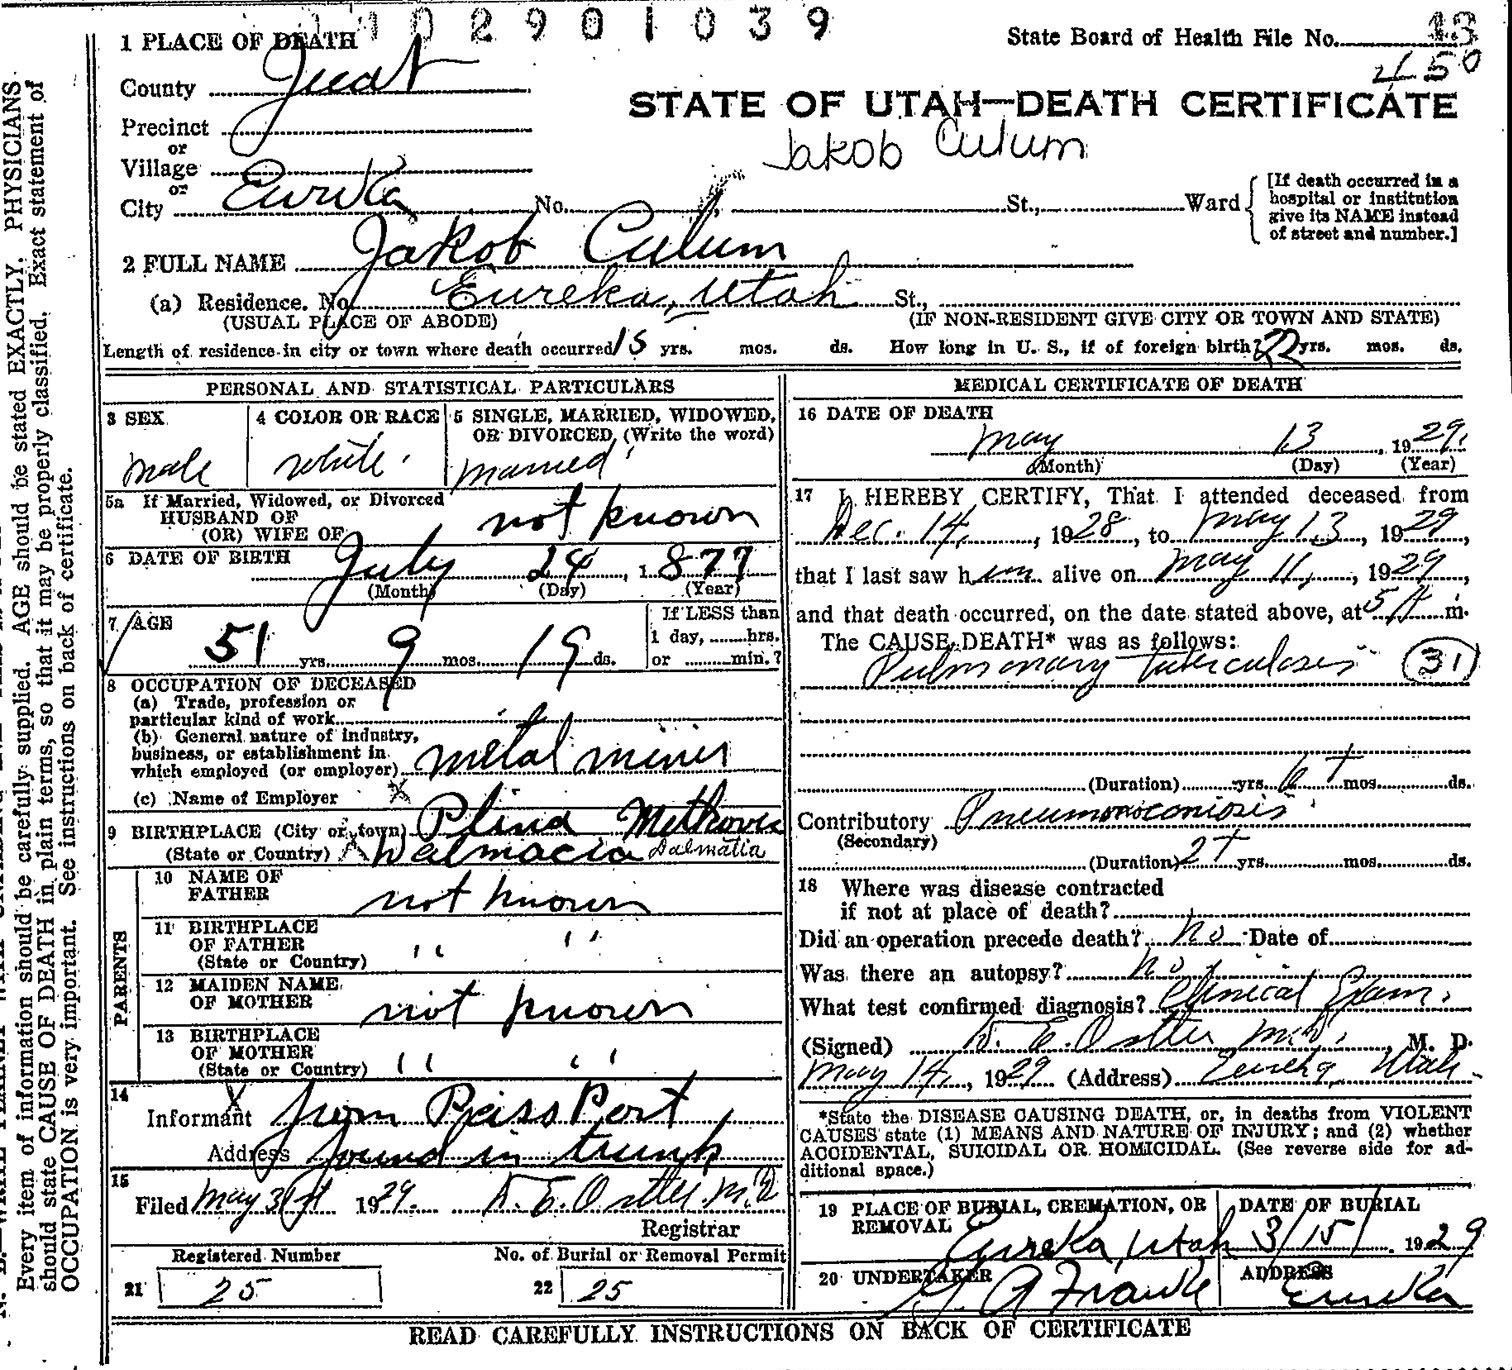 1 0 2 9 0 1 0 3 9
1 PLACE OF DEATH
State Board of Health File No. 13
450
County Juab
STATE OF UTAH—DEATH CERTIFICATE
Precinct
or
Jakob Culum
Village
or
City Eureka No. St., Ward
[If death occurred in a
hospital or institution
give its NAME instead
of street and number.]
2 FULL NAME Jakob Culum
(a) Residence. No. Eureka, Utah St.,
(USUAL PLACE OF ABODE) (IF NON-RESIDENT GIVE CITY OR TOWN AND STATE)
Length of residence in city or town where death occurred 15 yrs. mos. ds. How long in U. S., if of foreign birth? 22 yrs. mos. ds.
PERSONAL AND STATISTICAL PARTICULARS
3 SEX
male
4 COLOR OR RACE
white.
5 SINGLE, MARRIED, WIDOWED,
OR DIVORCED, (Write the word)
married
5a If Married, Widowed, or Divorced
HUSBAND OF
(OR) WIFE OF not known
6 DATE OF BIRTH July 24, 1877
(Month) (Day) (Year)
7 AGE
51 yrs. 9 mos. 19 ds.
If LESS than
1 day, ......hrs.
or ......min.?
8 OCCUPATION OF DECEASED
(a) Trade, profession or
particular kind of work
(b) General nature of industry,
business, or establishment in
which employed (or employer) metal miner
(c) Name of Employer x
9 BIRTHPLACE (City or town) Plina Metkovic
(State or Country) X Dalmacia Dalmatia
PARENTS
10 NAME OF
FATHER not known
11 BIRTHPLACE
OF FATHER " "
(State or Country)
12 MAIDEN NAME
OF MOTHER not known
13 BIRTHPLACE
OF MOTHER
(State or Country) " "
14
Informant from Peiss Port
Address found in trunk
15
Filed May 31st 1929. D. E. Ostler M.D
Registrar
Registered Number No. of Burial or Removal Permit
21 25 22 25
MEDICAL CERTIFICATE OF DEATH
16 DATE OF DEATH
May 13, 1929.
(Month) (Day) (Year)
17 I HEREBY CERTIFY, That I attended deceased from
Dec. 14, 1928, to May 13, 1929,
that I last saw him alive on May 11, 1929,
and that death occurred, on the date stated above, at 5 A m.
The CAUSE DEATH* was as follows:
Pulmonary tuberculosis 31
(Duration) yrs. 6+ mos. ds.
Contributory Pneumonoconiosis
(Secondary)
(Duration) 2+ yrs. mos. ds.
18 Where was disease contracted
if not at place of death?
Did an operation precede death? no Date of
Was there an autopsy? no
What test confirmed diagnosis? Clinical Exam.
(Signed) D. E. Ostler M.D., M. D.
May 14, 1929 (Address) Eureka, Utah.
*State the DISEASE CAUSING DEATH, or, in deaths from VIOLENT
CAUSES state (1) MEANS AND NATURE OF INJURY; and (2) whether
ACCIDENTAL, SUICIDAL OR HOMICIDAL. (See reverse side for ad-
ditional space.)
19 PLACE OF BURIAL, CREMATION, OR
REMOVAL
Eureka, Utah
DATE OF BURIAL
3/15/ 1929
20 UNDERTAKER
G A Franke
ADDRESS
Eureka
READ CAREFULLY INSTRUCTIONS ON BACK OF CERTIFICATE
Every item of information should be carefully supplied. AGE should be stated EXACTLY. PHYSICIANS
should state CAUSE OF DEATH in plain terms, so that it may be properly classified. Exact statement of
OCCUPATION is very important. See instructions on back of certificate.